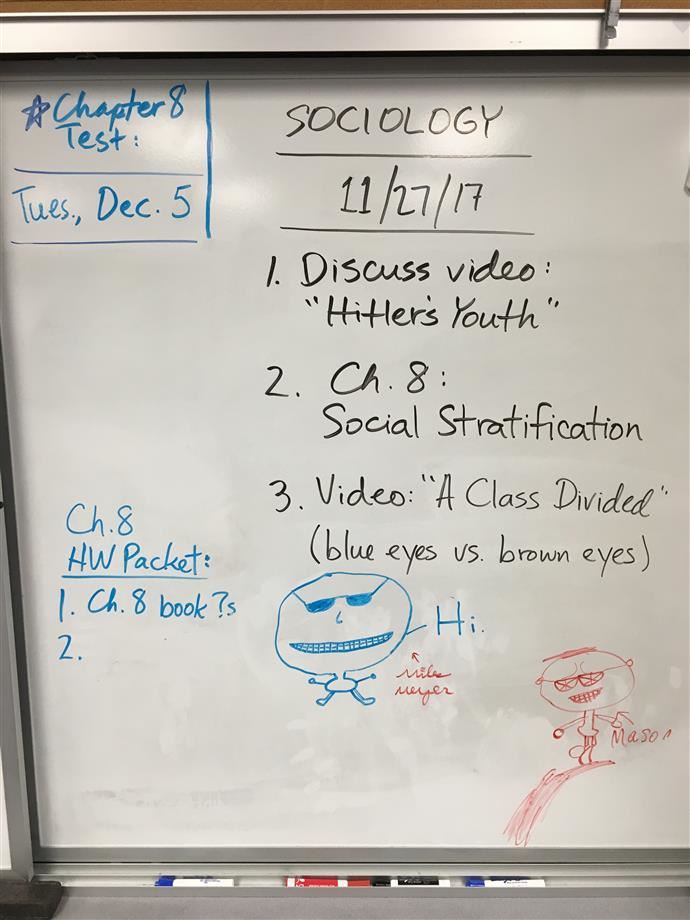 ☆ Chapter 8
Test:
Tues., Dec. 5
SOCIOLOGY
11/27/17
1. Discuss video:
"Hitler's Youth"
2. Ch. 8:
Social Stratification
3. Video: "A Class Divided"
(blue eyes vs. brown eyes)
Ch. 8
HW Packet:
1. Ch. 8 book ?s
2.
Hi.
Mike
Meyer
Mason